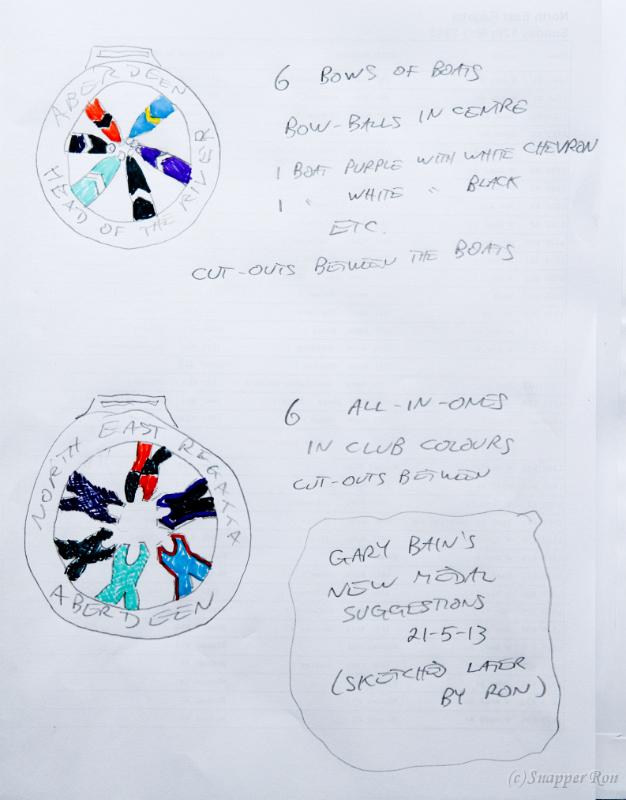 ABERDEEN
HEAD OF THE RIVER
6 BOWS OF BOATS
BOW-BALLS IN CENTRE
1 BOAT PURPLE WITH WHITE CHEVRON
1 " WHITE " BLACK
ETC.
CUT-OUTS BETWEEN THE BOATS
NORTH EAST REGATTA
ABERDEEN
6 ALL-IN-ONES
IN CLUB COLOURS
CUT-OUTS BETWEEN
GARY BAIN'S
NEW MEDAL
SUGGESTIONS
21-5-13
(SKETCHED LATER
BY RON)
(c)Snapper Ron